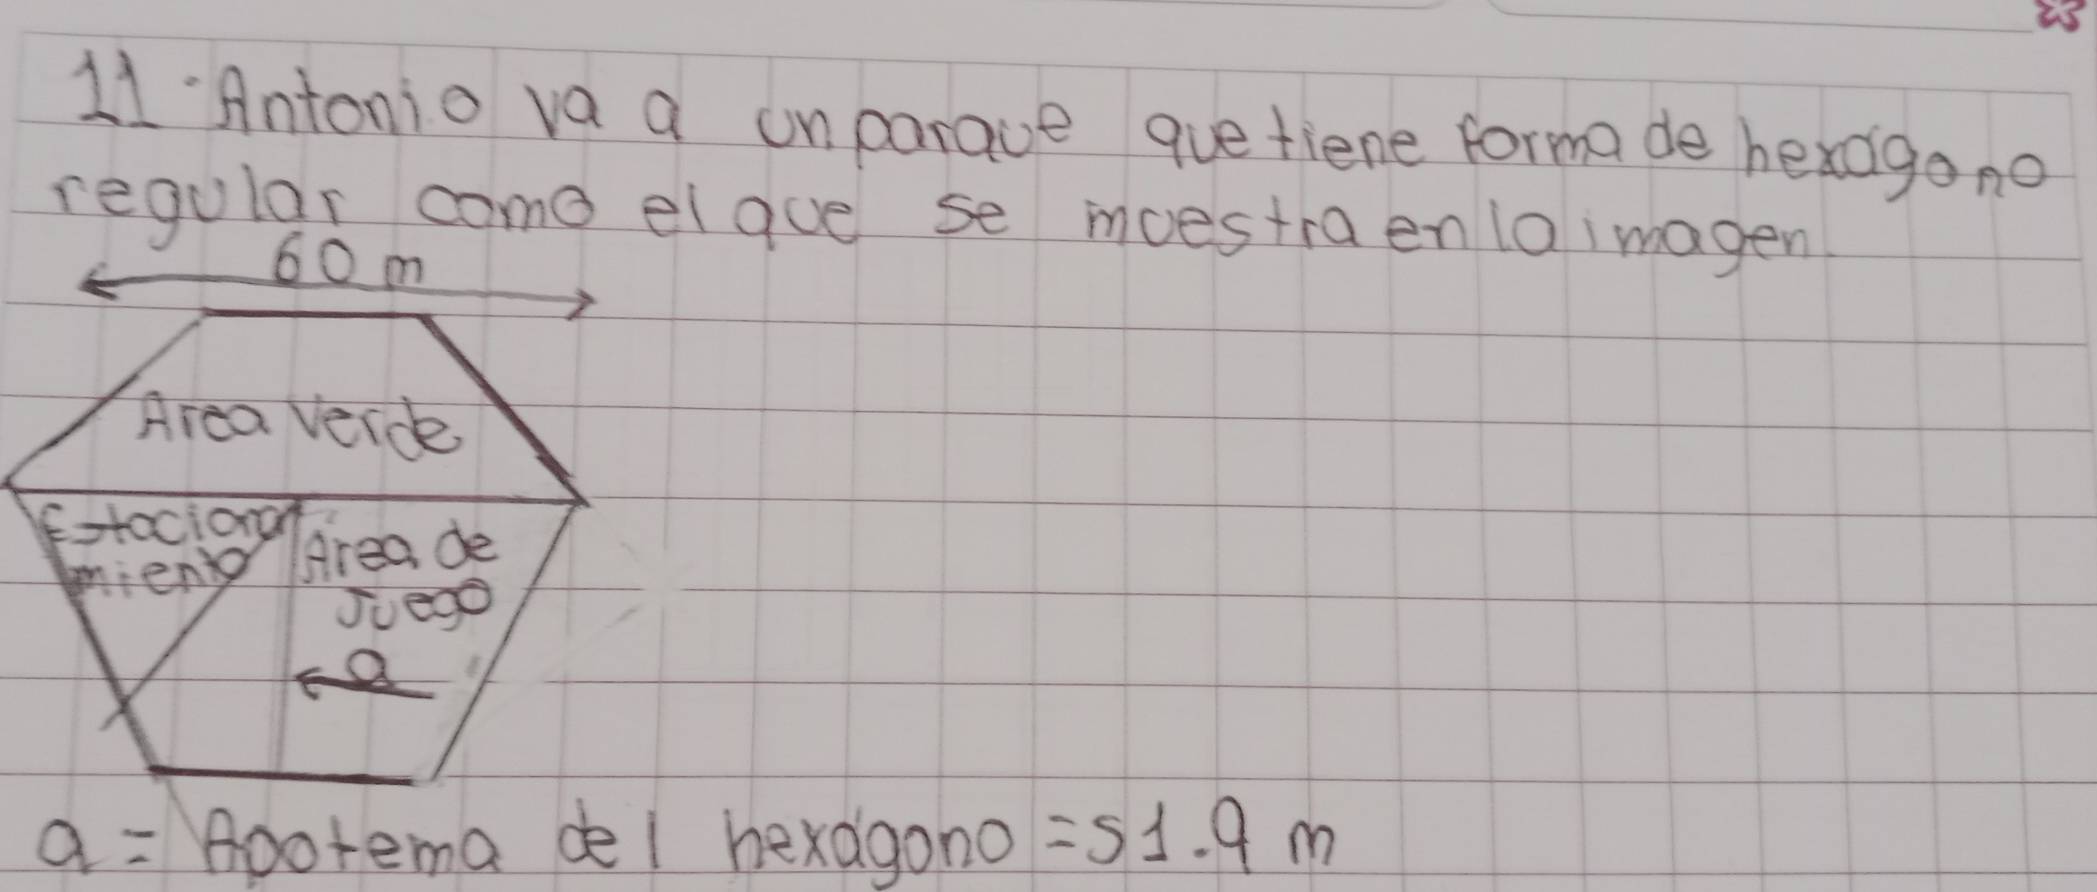 11. Antonio va a un parque que tiene forma de hexágono
regular como el que se muestra en la imagen
60 m
Area verde
Estaciona
miento
Área de
Juego
a
a = Apotema del hexágono = 51.9 m